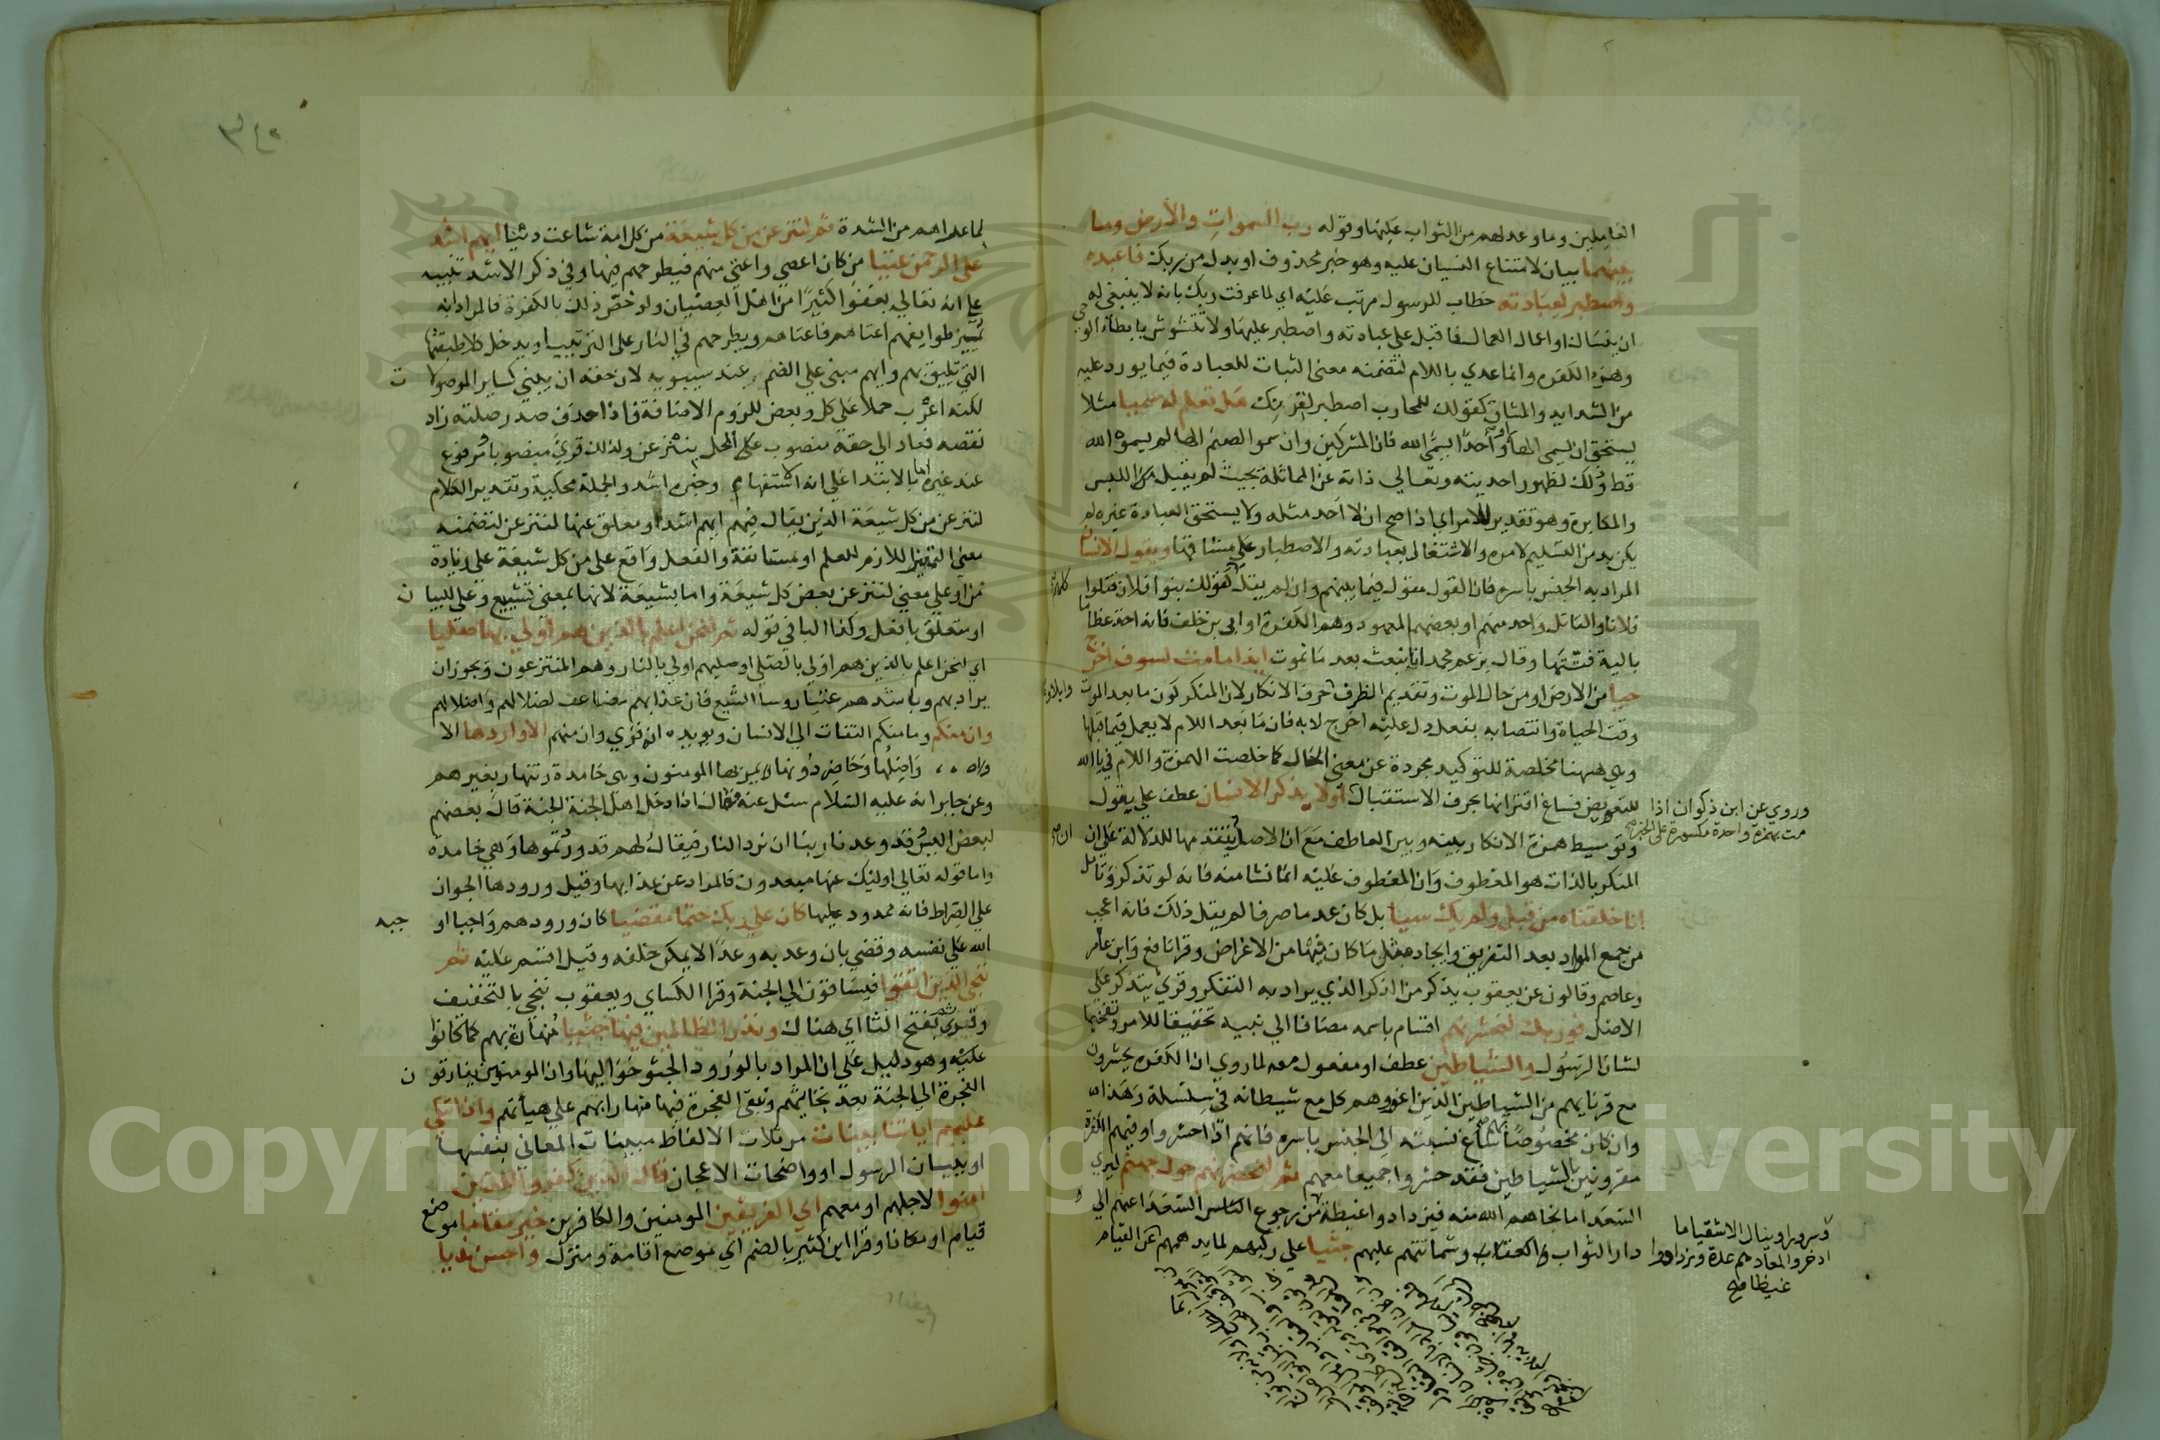 العاملين وما وعد لهم من الثواب عليها وقوله رب السموات والأرض وما
بينهما بيان لامتناع النسيان عليه وهو خبر محذوف او بدل من ربك فاعبده
واصطبر لعبادته خطاب للرسول مرتب عليه اي لما عرفت ربك بانه لا ينبغي له
ان ينساك او اعمال العمال فاقبل على عبادته واصطبر عليها ولا تتشوش بابطاء الوحي
وهزء الكفره وانما عدي باللام لتضمنه معنى الثبات للعبادة فيما يورد عليه
من الشدايد والمشاق كقولك للمحارب اصطبر لقرنك هل تعلم له سميا مثلا
يستحق ان يسمى الها او احدا يسمى الله فان المشركين وان سموا الصنم الها لم يسموه الله
قط وذلك لظهور احديته وتعالى ذاته عن المماثلة بحيث لم يقبل من اللبس
والمكابرة وهو تقدير للامر اي اذا صح ان لا احد مثله ولا يستحق العبادة غيره لم
يكن بد من التسليم لامره والاشتغال بعبادته والاصطبار على مشاقها ويقول الانسان
المراد به الجنس باسره فان القول مقول فيما بينهم وان لم يقل كلهم كقولك بنوا فلان قتلوا
فلانا والقاتل واحد منهم او بعضهم المعهود وهم الكفرة او ابي بن خلف فانه اخذ عظاما
بالية ففتتها وقال يزعم محمد انا نبعث بعد ما نموت ايذا ما مت لسوف اخرج
حيا من الارض او من حال الموت وتقديم الظرف وايلاؤه حرف الانكار لان المنكر كون ما بعد الموت
وقت الحياة وانتصابه بفعل دل عليه اخرج لا به فان ما بعد اللام لا يعمل فيما قبلها
وهي ههنا مخلصة للتوكيد مجردة عن معنى الحال كما خلصت الهمزة واللام في يا الله
للتعويض فساغ اقترانها بحرف الاستقبال اولا يذكر الانسان عطف على يقول
وتوسيط همزة الانكار بينه وبين العاطف مع ان الاصل ان يتقدمها للدلالة على ان
المنكر بالذات هو المعطوف وان المعطوف عليه انما نشا منه فانه لو تذكر وتامل
انا خلقناه من قبل ولم يك شيا بل كان عدما صرفا لم يقل ذلك فانه اعجب
من جمع المواد بعد التفريق وايجاد مثل ما كان فيها من الاعراض وقرا نافع وابن عامر
وعاصم وقالون عن يعقوب يذكر من الذكر الذي يراد به التفكر وقرئ يتذكر على
الاصل فوربك لنحشرنهم اقسام باسمه مضافا الى نبيه تحقيقا للامر وتفخيما
لشان الرسول والشياطين عطف او مفعول معه لما روي ان الكفره يحشرون
مع قرنايهم من الشياطين الذين اغووهم كل مع شيطانه في سلسلة وهذا
وان كان مخصوصا بهم ساغ نسبته الى الجنس باسره فانهم اذا حشروا وفيهم الكفرة
مقرونين بالشياطين فقد حشروا جميعا معهم ثم لنحضرنهم حول جهنم ليري
السعدا ما نجاهم الله منه فيزدادوا غبطة من رجوع السعدا عنهم الى
دار الثواب وشماتتهم عليهم جثيا على ركبهم لما يدهمهم من
وروي عن ابن ذكوان اذا
مت بهمزة واحدة مكسورة على الخبر
وسرورا وينال الاشقيا ما
ادخروا لمعادهم عدة ويزدادوا
غيظا
٣٤٠
لما عداهم من الشدة ثم لننزعن من كل شيعة من كل امة شاعت دينا ايهم اشد
على الرحمن عتيا من كان اعصى واعتى منهم فيطرحهم فيها وفي ذكر الاشد تنبيه
على انه تعالى يعفوا كثيرا من اهل العصيان ولو خص ذلك بالكفرة فالمراد انه
يميز طوايفهم اعتاهم فاعتاهم ويطرحهم في النار على الترتيب او يدخل كلا طبقتها
التي تليق بهم وايهم مبني على الضم عند سيبويه لان حقه ان يبني كساير الموصولات
لكنه اعرب حملا على كل وبعض للزوم الاضافة فاذا حذف صدر صلته زاد
نقصه فعاد الى حقه منصوب على المحل بننزعن ولذلك قرئ منصوبا مرفوع
عند غيره اما بالابتدا على انه استفهام وخبره اشد والجملة محكية وتقدير الكلام
لننزعن من كل شيعة الذين يقال فيهم ايهم اشد او معلق عنها لننزعن لتضمنه
معنى التمييز اللازم للعلم او مستانفة والفعل واقع على من كل شيعة على زيادة
من او على معنى لننزعن بعض كل شيعة واما بشيعة لانها بمعنى تشيع وعلى للبيان
او متعلق بافعل وكذا البا في قوله ثم لنحن اعلم بالذين هم اولى بها صليا
اي لنحن اعلم بالذين هم اولى بالصلي او صليهم اولى بالنار وهم المنتزعون ويجوز ان
يراد بهم وباشدهم عتيا روسا الشيع فان عذابهم مضاعف لضلالهم واضلالهم
وان منكم وما منكم التفات الى الانسان ويويده انه قرئ وان منهم الا واردها الا
واصلها وحاضر دونها يمر بها المومنون وهي خامدة وتنهار بغيرهم
وعن جابر انه عليه السلام سئل عنه فقال اذا دخل اهل الجنة الجنة قال بعضهم
لبعض اليس قد وعدنا ربنا ان نرد النار فيقال لهم قد وردتموها وهي خامدة
واما قوله تعالى اوليك عنها مبعدون فالمراد عن عذابها وقيل ورودها الجواز
على الصراط فانه ممدود عليها كان على ربك حتما مقضيا كان ورودهم واجبا اوجبه
الله على نفسه وقضى بان وعد به وعدا لا يمكن خلفه وقيل اقسم عليه ثم
ننجي الذين اتقوا فيساقون الى الجنة وقرا الكساي ويعقوب ننجي بالتخفيف
وقرئ ثم بفتح الثا اي هناك ونذر الظالمين فيها جثيا منهارة بهم كما كانوا
عليه وهو دليل على ان المراد بالورود الجثو حواليها وان المومنين يفارقون
الفجرة الى الجنة بعد تجاثيهم وتبقى الفجرة فيها منهارا بهم على هيأتهم واذا تتلى
عليهم اياتنا بينات مرتلات الالفاظ مبينات المعاني بنفسها
او ببيان الرسول او واضحات الاعجاز قال الذين كفروا للذين
امنوا لاجلهم او معهم اي الفريقين المومنين والكافرين خير مقاما موضع
قيام او مكانا وقرا ابن كثير بالضم اي موضع اقامة ومنزل واحسن نديا
Copyright © King Saud University